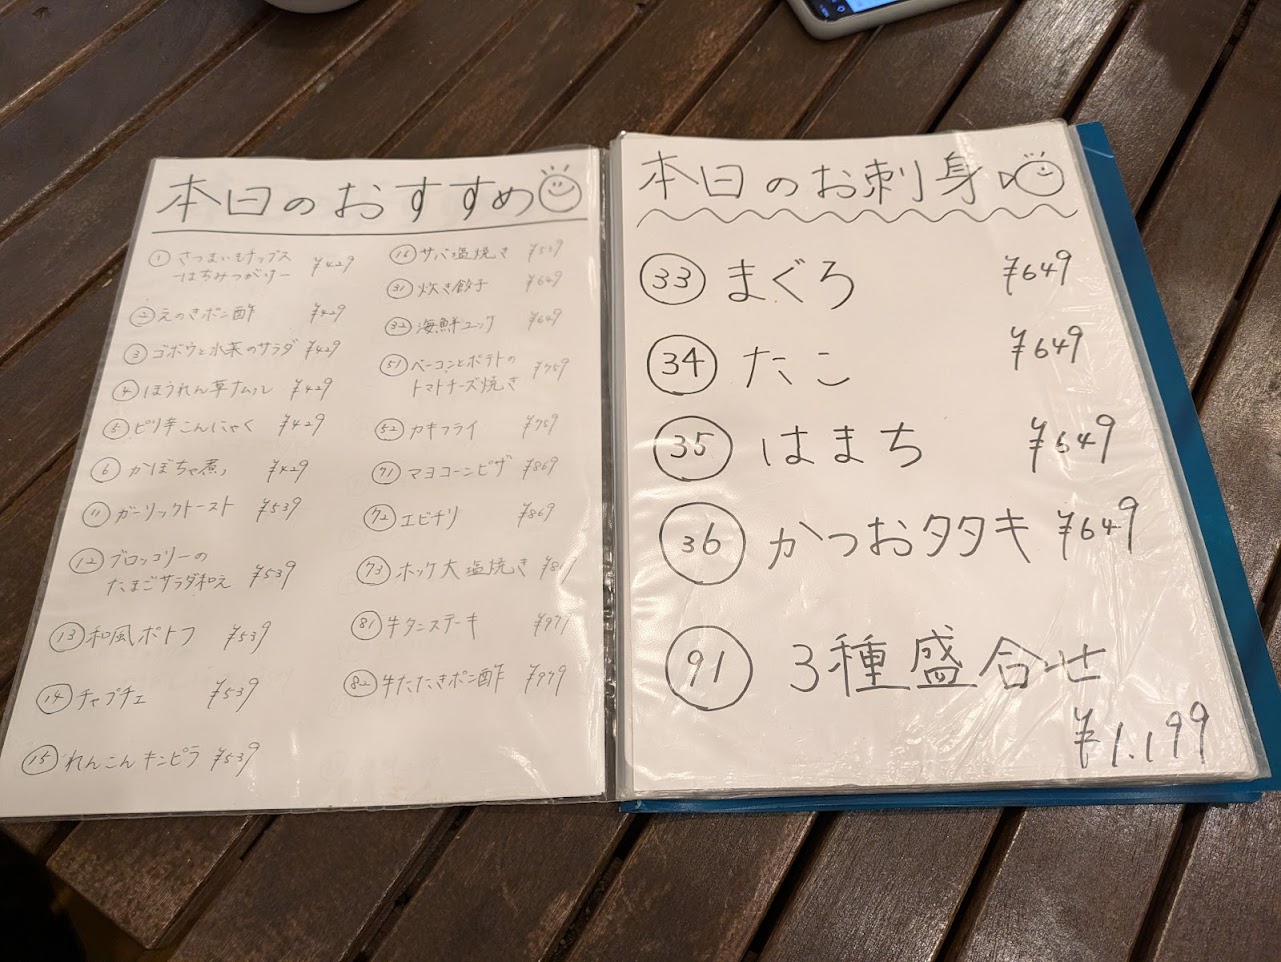 本日のおすすめ
① さつまいもチップス ¥429
ーはちみつがけー
② えのきポン酢 ¥429
③ ゴボウと水菜のサラダ ¥429
④ ほうれん草ナムル ¥429
⑤ ピリ辛こんにゃく ¥429
⑥ かぼちゃ煮 ¥429
⑪ ガーリックトースト ¥539
⑫ ブロッコリーの
たまごサラダ和え ¥539
⑬ 和風ポトフ ¥539
⑭ チャプチェ ¥539
⑮ れんこんキンピラ ¥539
⑯ サバ塩焼き ¥539
㉛ 炊き餃子 ¥649
㉜ 海鮮ユッケ ¥649
51 ベーコンとポテトの ¥759
トマトチーズ焼き
52 カキフライ ¥759
71 マヨコーンピザ ¥869
72 エビチリ ¥869
73 ホッケ大塩焼き
81 牛タンステーキ ¥979
82 牛たたきポン酢 ¥979
本日のお刺身
33 まぐろ ¥649
34 たこ ¥649
35 はまち ¥649
36 かつおタタキ ¥649
91 3種盛合せ
¥1.199